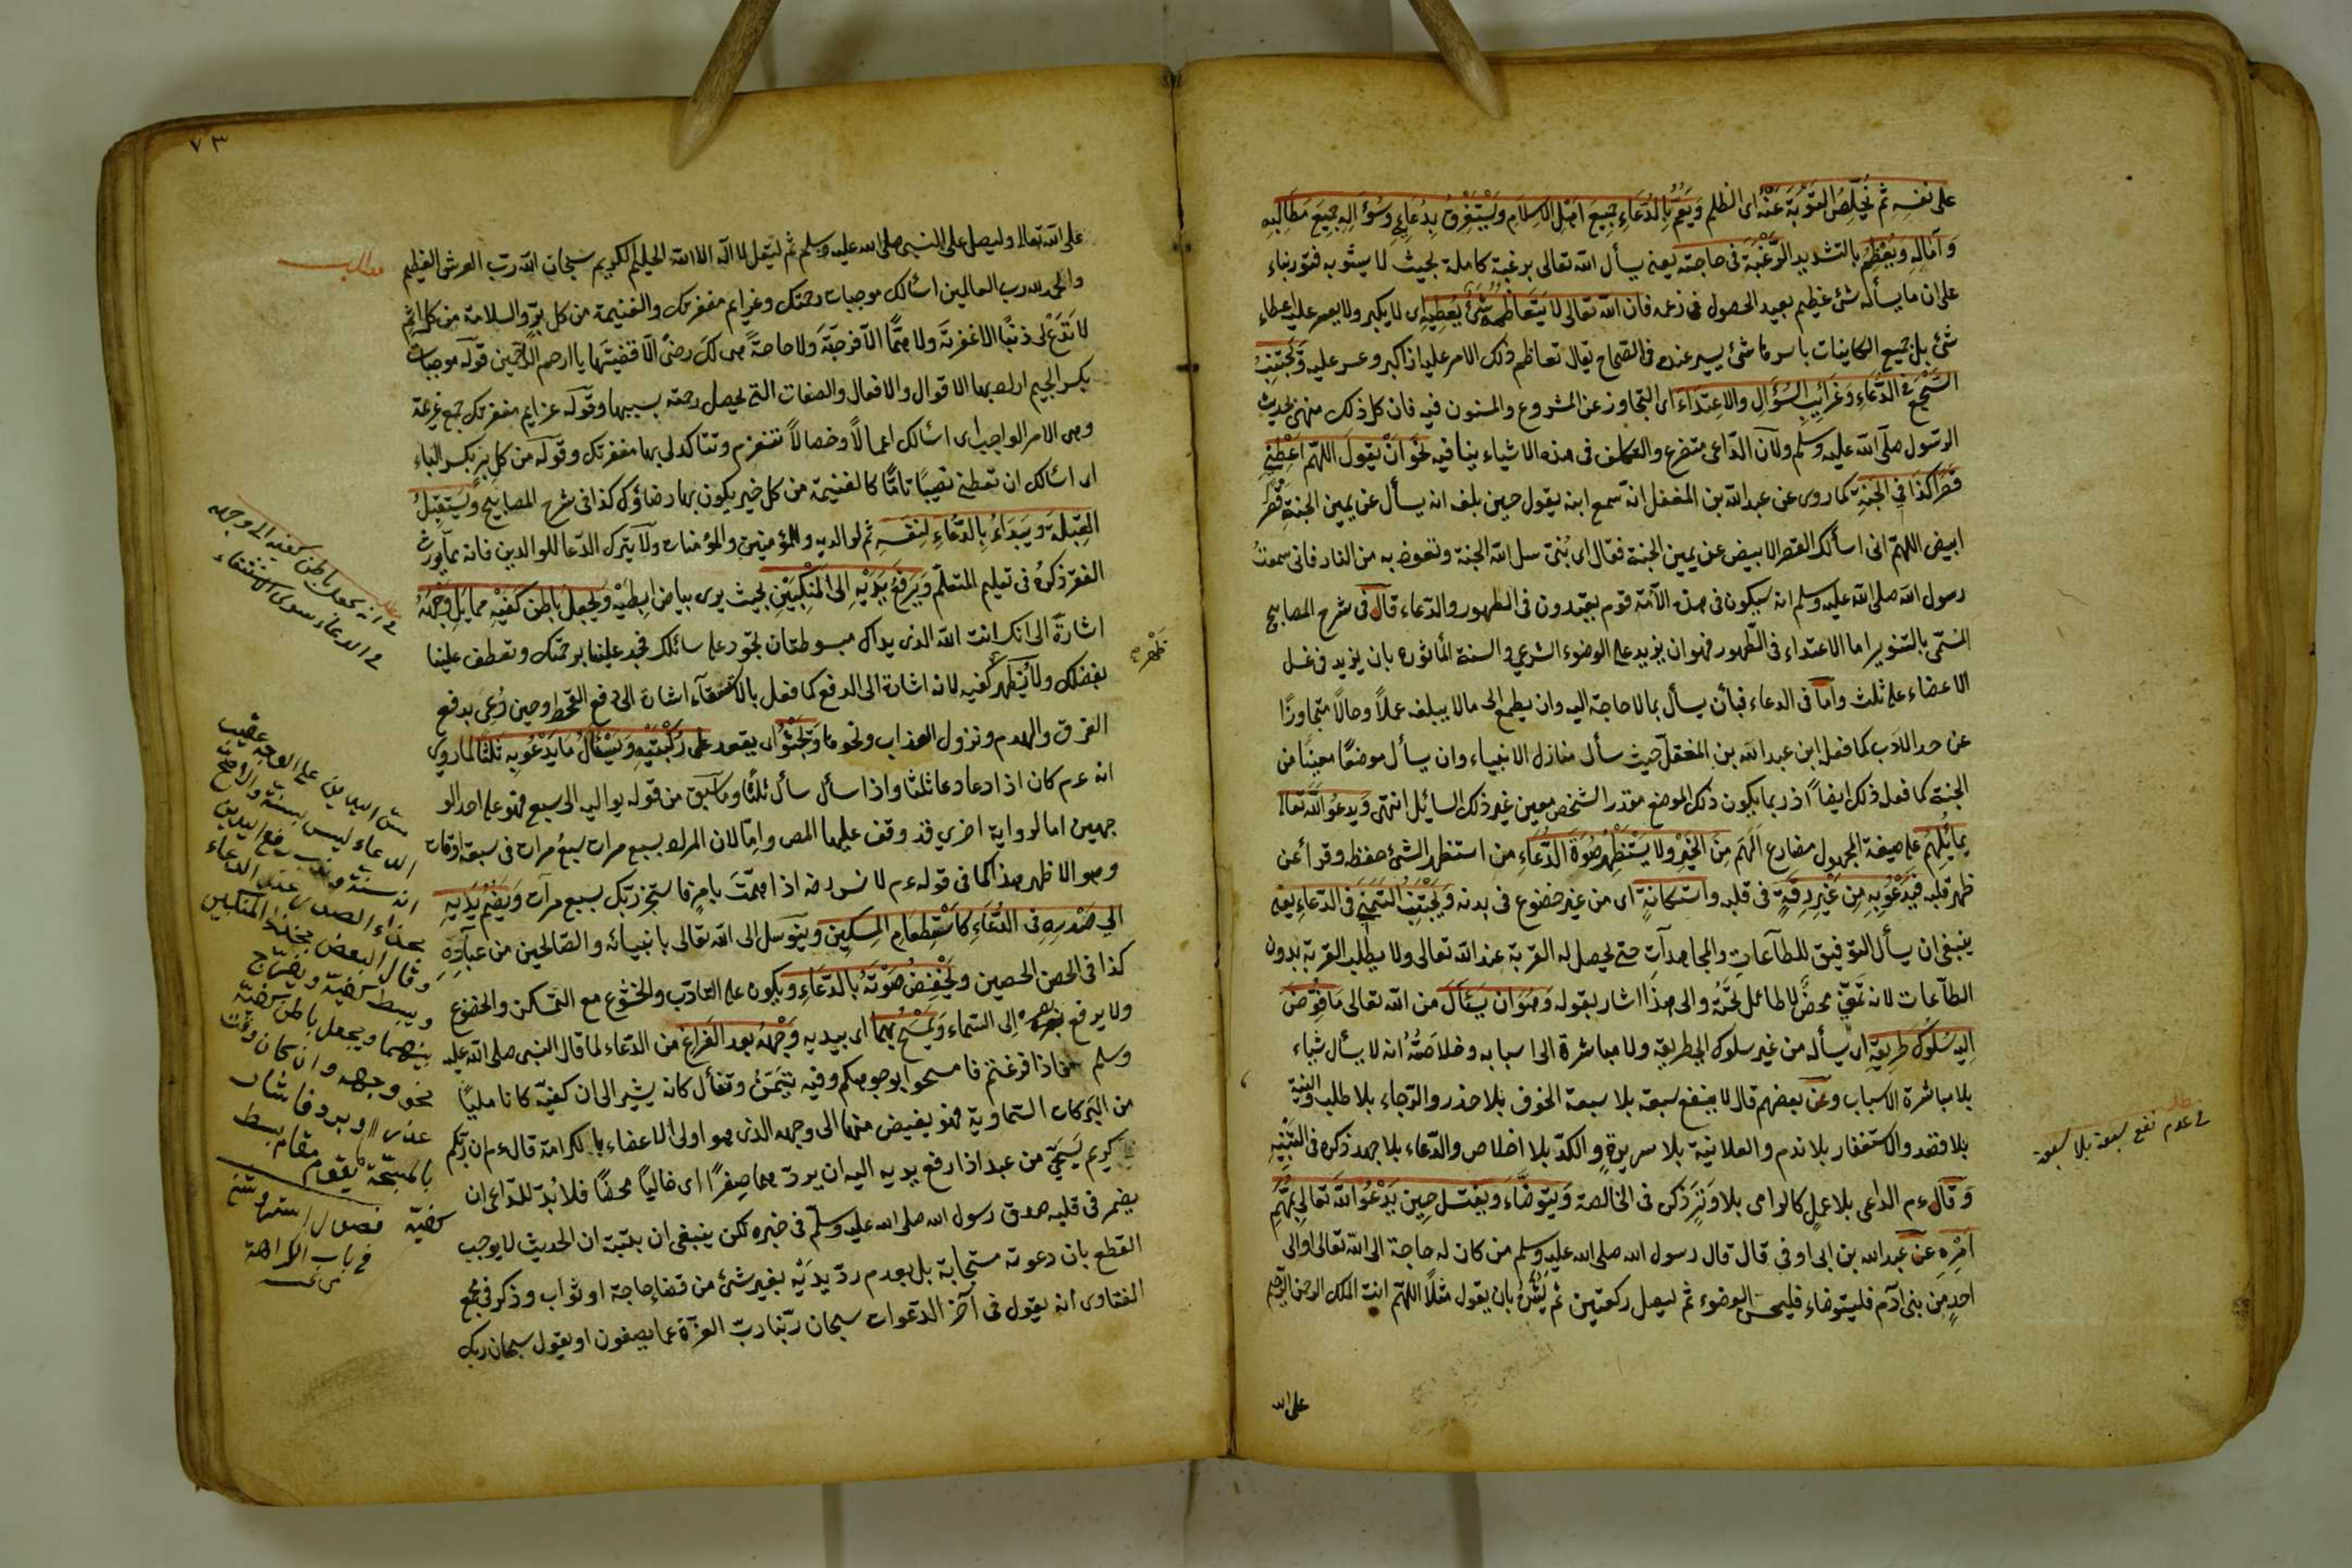 على نفسه ثم يُخَلِّصُ التَّوْبَةَ عَنْهُ اى الظلم وَيَعُمُّ بِالدُّعَاءِ جَمِيعَ اَهْلِ الاِسْلاَمِ وَيَسْتَغْرِقُ بِدُعَائِهِ وَسُؤَالِهِ جَمِيعَ مَطَالِبِهِ
وَآمَالِهِ وَيُعَظِّمُ بالتشديد الرَّغْبَةَ فى حاجته يعنى يسأل الله تعالى برغبة كاملة بحيث لا يشوبه فتور بناء
على ان ما يسأله شئ عظيم بعيد الحصول فى زعمه فان الله تعالى لا يَتَعَاظَمُهُ شَئٌ يُعْطِيهِ اى لا يكبر ولا يعسر عليه اعطاء
شئ بل جميع الكاينات باسرها شئ يسير عنده فى الصحاح يقال تعاظم ذلك الامر عليه اذا كبر وعسر عليه وَيَجْتَنِبُ
السَّجْعَ فى الدُّعَاءِ وَغَرَائِبَ السُّؤَالِ والاِعْتِدَاءَ اى التجاوز عن المشروع والمسنون فيه فان كل ذلك منهى بحديث
الرسول صلى الله عليه وسلم ولان الداعى متضرع والتكلف فى هذه الاشياء ينافيه نَحْوُ اَنْ يَقُولَ اللَّهُمَّ اَعْطِنِى
قَصْرًا كَذَا فى الجَنَّةِ كما روى عن عبد الله بن المغفل انه سمع ابنه يقول حين بلغه انه يسأل عن يمين الجنة قصر
ابيض اللهم انى اسألك القصر الابيض عن يمين الجنة فقال اى بُنَىّ سل الله الجنة وتعوذ به من النار فانى سمعت
رسول الله صلى الله عليه وسلم انه سيكون فى هذه الامة قوم يعتدون فى الطهور والدعاء قال فى شرح المصابيح
المسمى بالتنوير اما الاعتداء فى الطهور فهو ان يزيد على الوضوء الشرعى والسنة المأثوره بان يزيد فى غسل
الاعضاء على ثلث واما فى الدعاء فبأن يسأل بما لا حاجة اليه وان يطمع الى ما لا يبلغه عملاً وحالاً متجاوزًا
عن حد الادب كما فعل ابن عبد الله بن المغفل حيث سأل منازل الانبياء وان يسأل موضعًا معينًا من
الجنة كما فعل ذلك ايضاً اذ ربما يكون ذلك الموضع مقدر الشخص معين غير ذلك السايل انتهى وَيَدعُو اللهَ تعالى
بِمَا يُلْهَمُ على صيغة المجهول مضارع اَلْهَمَ مِنَ الخَيْرِ وَلا يَسْتَظْهِرُ صُورَةَ الدُّعَاءِ من استظهر الشئ حفظه وقرأ عن
ظهر قلبه فَيَدْعُوَ بِهِ مِنْ غَيْرِ رِقَّةٍ فى قلبه وَاستكَانَةٍ اى من غير خضوع فى بدنه وَيَجْتَنِبُ التَّمَنِّىَ فى الدعاء يعنى
ينبغى ان يسأل التوفيق للطاعات والمجاهدات حتى يحصل له القربة عند الله تعالى ولا يطلب القربة بدون
الطاعات لانه تَمَنٍّ محضٌ لا طائل تحته والى هذا اشار بقوله وَهُوَ اَن يَسْأَلَ من الله تعالى مَا فَوَّضَ
اِلَيهِ سُلُوكَ طَرِيقِهِ اى يسأله من غير سلوك الى طريقه ولا مباشرة الى اسبابه وخلاصته انه لا يسأل شياء
بلا مباشرة الاسباب وعن بعضهم قال لا ينفع سبعة بلا سبعة الخوف بلا حذر والرجاء بلا طلب والنية
بلا قصد والاستغفار بلا ندم والعلانية بلا سريرة والكد بلا اخلاص والدعاء بلا جهد ذكره فى التنبيه
وقال ءم الداعى بلا عمل كالرامى بلا وتر ذكره فى الخالصة وَيَتَوَضَّاءُ وَيغتسل حِينَ يَدْعُو اللهَ تَعالى بِمُهِمِّ
اَمْرِهِ عن عبد الله بن ابى اوفى قال قال رسول الله صلى الله عليه وسلم من كان له حاجة الى الله تعالى او الى
احدٍ من بنى آدم فليتوضاء فليحسن الوضوء ثم ليصل ركعتين ثم يُثْنِ بان يقول مثلاً اللهم انت الملك الرحمن الرحيم
على الله
فى عدم نفع سبعة بلا سبعة
٧٣
على الله تعالى وليصل على النبى صلى الله عليه وسلم ثم ليقل لا اله الا الله الحليم الكريم سبحان الله رب العرش العظيم
والحمد لله رب العالمين اسألك موجبات رحمتك وعزايم مغفرتك والغنيمة من كل بر والسلامة من كل اثم
لا تدع لى ذنبًا الا غفرته ولا همًّا الا فرجته ولا حاجة هى لك رضىً الا قضيتها يا ارحم الراحمين قوله موجبات
بكسر الجيم اراد بها الاقوال والافعال والصفات التى يحصل رحمته بسببها وقوله عزايم مغفرتك جمع عزيمة
وهى الامر الواجب اى اسألك اعمالاً وخصالاً تتعزم وتتأكد لى بها مغفرتك وقوله من كل بر بكسر الباء
اى اسألك ان تعطنى نصيبًا تامًّا كالغنيمة من كل خير يكون بها رضاؤك كذا فى شرح المصابيح وَيَسْتَقْبِلُ
القِبْلَةَ وَيَبْدَاءُ بِالدُّعَاءِ لِنَفْسِهِ ثم لوالديه وللمؤمنين والمؤمنات ولا يترك الدعا للوالدين فانه مما يورث
الفقر ذكره فى تعليم المتعلم وَيَرفَعُ يَدَيْهِ اِلى المَنْكِبَيْنِ بحيث يرى بياض ابطيه وَيَجْعَلُ بَاطِنَ كَفَّيْهِ مما يَلِى وَجْهَهُ
اشارة الى انك انت الله الذى يداك مبسوطتان تجود على سائلك فجد علينا برحمتك وتعطف علينا
بفضلك ولا يُظهر كفيه لانه اشارة الى الدفع كما فعل بالاستسقاء اشارة الى رفع القحط وحين دُعِىَ بدفع
الغرق والهدم ونزول العذاب ونحوها وَيَجْثُو اى يقعد عَلى رُكْبَتَيْهِ وَيَسْأَلُ مَا يَدْعُو بِهِ ثَلثًا لما روى
انه ءم كان اذا دعا دعا ثلثا واذا سأل سأل ثلثًا وما سبق من قوله يواليه الى سبع فهو على احد الو
جهين اما لرواية اخرى قد وقف عليها المص واما لان المراد بسبع مرات سبع مرات فى سبعة اوقات
وهو الاظهر هذا كما فى قوله ءم لانس رضه اذا هممت بامر فاستخر ربك سبع مرات وَيَضُمُّ يَدَيهِ
اِلى صَدْرِهِ فى الدُّعَاءِ كَاسْتِطعَامِ المِسكِينِ ويتوسل الى الله تعالى بانبيائه والصالحين من عباده
كذا فى الحصن الحصين وَيَخْفِضُ صَوْتَهُ بِالدُّعَاءِ ويكون على التأدب والخشوع مع التمسكن والخضوع
ولا يرفع بصره اِلى السماء وَيَمْسَحُ بِهِما اى بيديه وَجْهَهُ بعد الفَرَاغ من الدعاء لما قال النبى صلى الله عليه
وسلم فاذا فرغتم فامسحوا بوجوهكم وفيه تيمن وتفأل كانه يشير الى ان كفيه كانا مليًا
من البركات السماوية فهو يفيض منها الى وجهه الذى هو اولى الاعضاء بالكرامة قال ءم ان ربكم
كريم يستحى من عبد اذا رفع يديه اليه ان يردهما صِفرًا اى خاليًا محضًا فلا بد للداعى ان
يضمر فى قلبه صدق رسول الله صلى الله عليه وسلم فى خبره لكن ينبغى ان يتنبه ان الحديث لا يوجب
القطع بان دعوته مستجابة بل بعدم رد يديه بغير شئ من قضاء حاجة او ثواب وذكر فى مجمع
الفتاوى انه يقول فى آخر الدعوات سبحان ربنا رب العزة عما يصفون او يقول سبحان ربك
مطلب
فى ان يجعل باطن كفيه الى وجهه
فى الدعاء سوى الاستسقاء
ظهر
مسح اليدين على الوجه عقيب
الدعاء ليس بسنة والاصح
انه سنة وندب رفع اليدين
بحذاء الصدر عند الدعاء
وقال البعض بحذاء المنكبين
ويبسط كفيه ويفرج
بينهما ويجعل باطن كفيه
نحو وجهه وان كان وقت
عذر او برد فاشار
بالمسبحة يقوم مقام بسط
كفيه فصول استروشنى
فى باب الكراهة